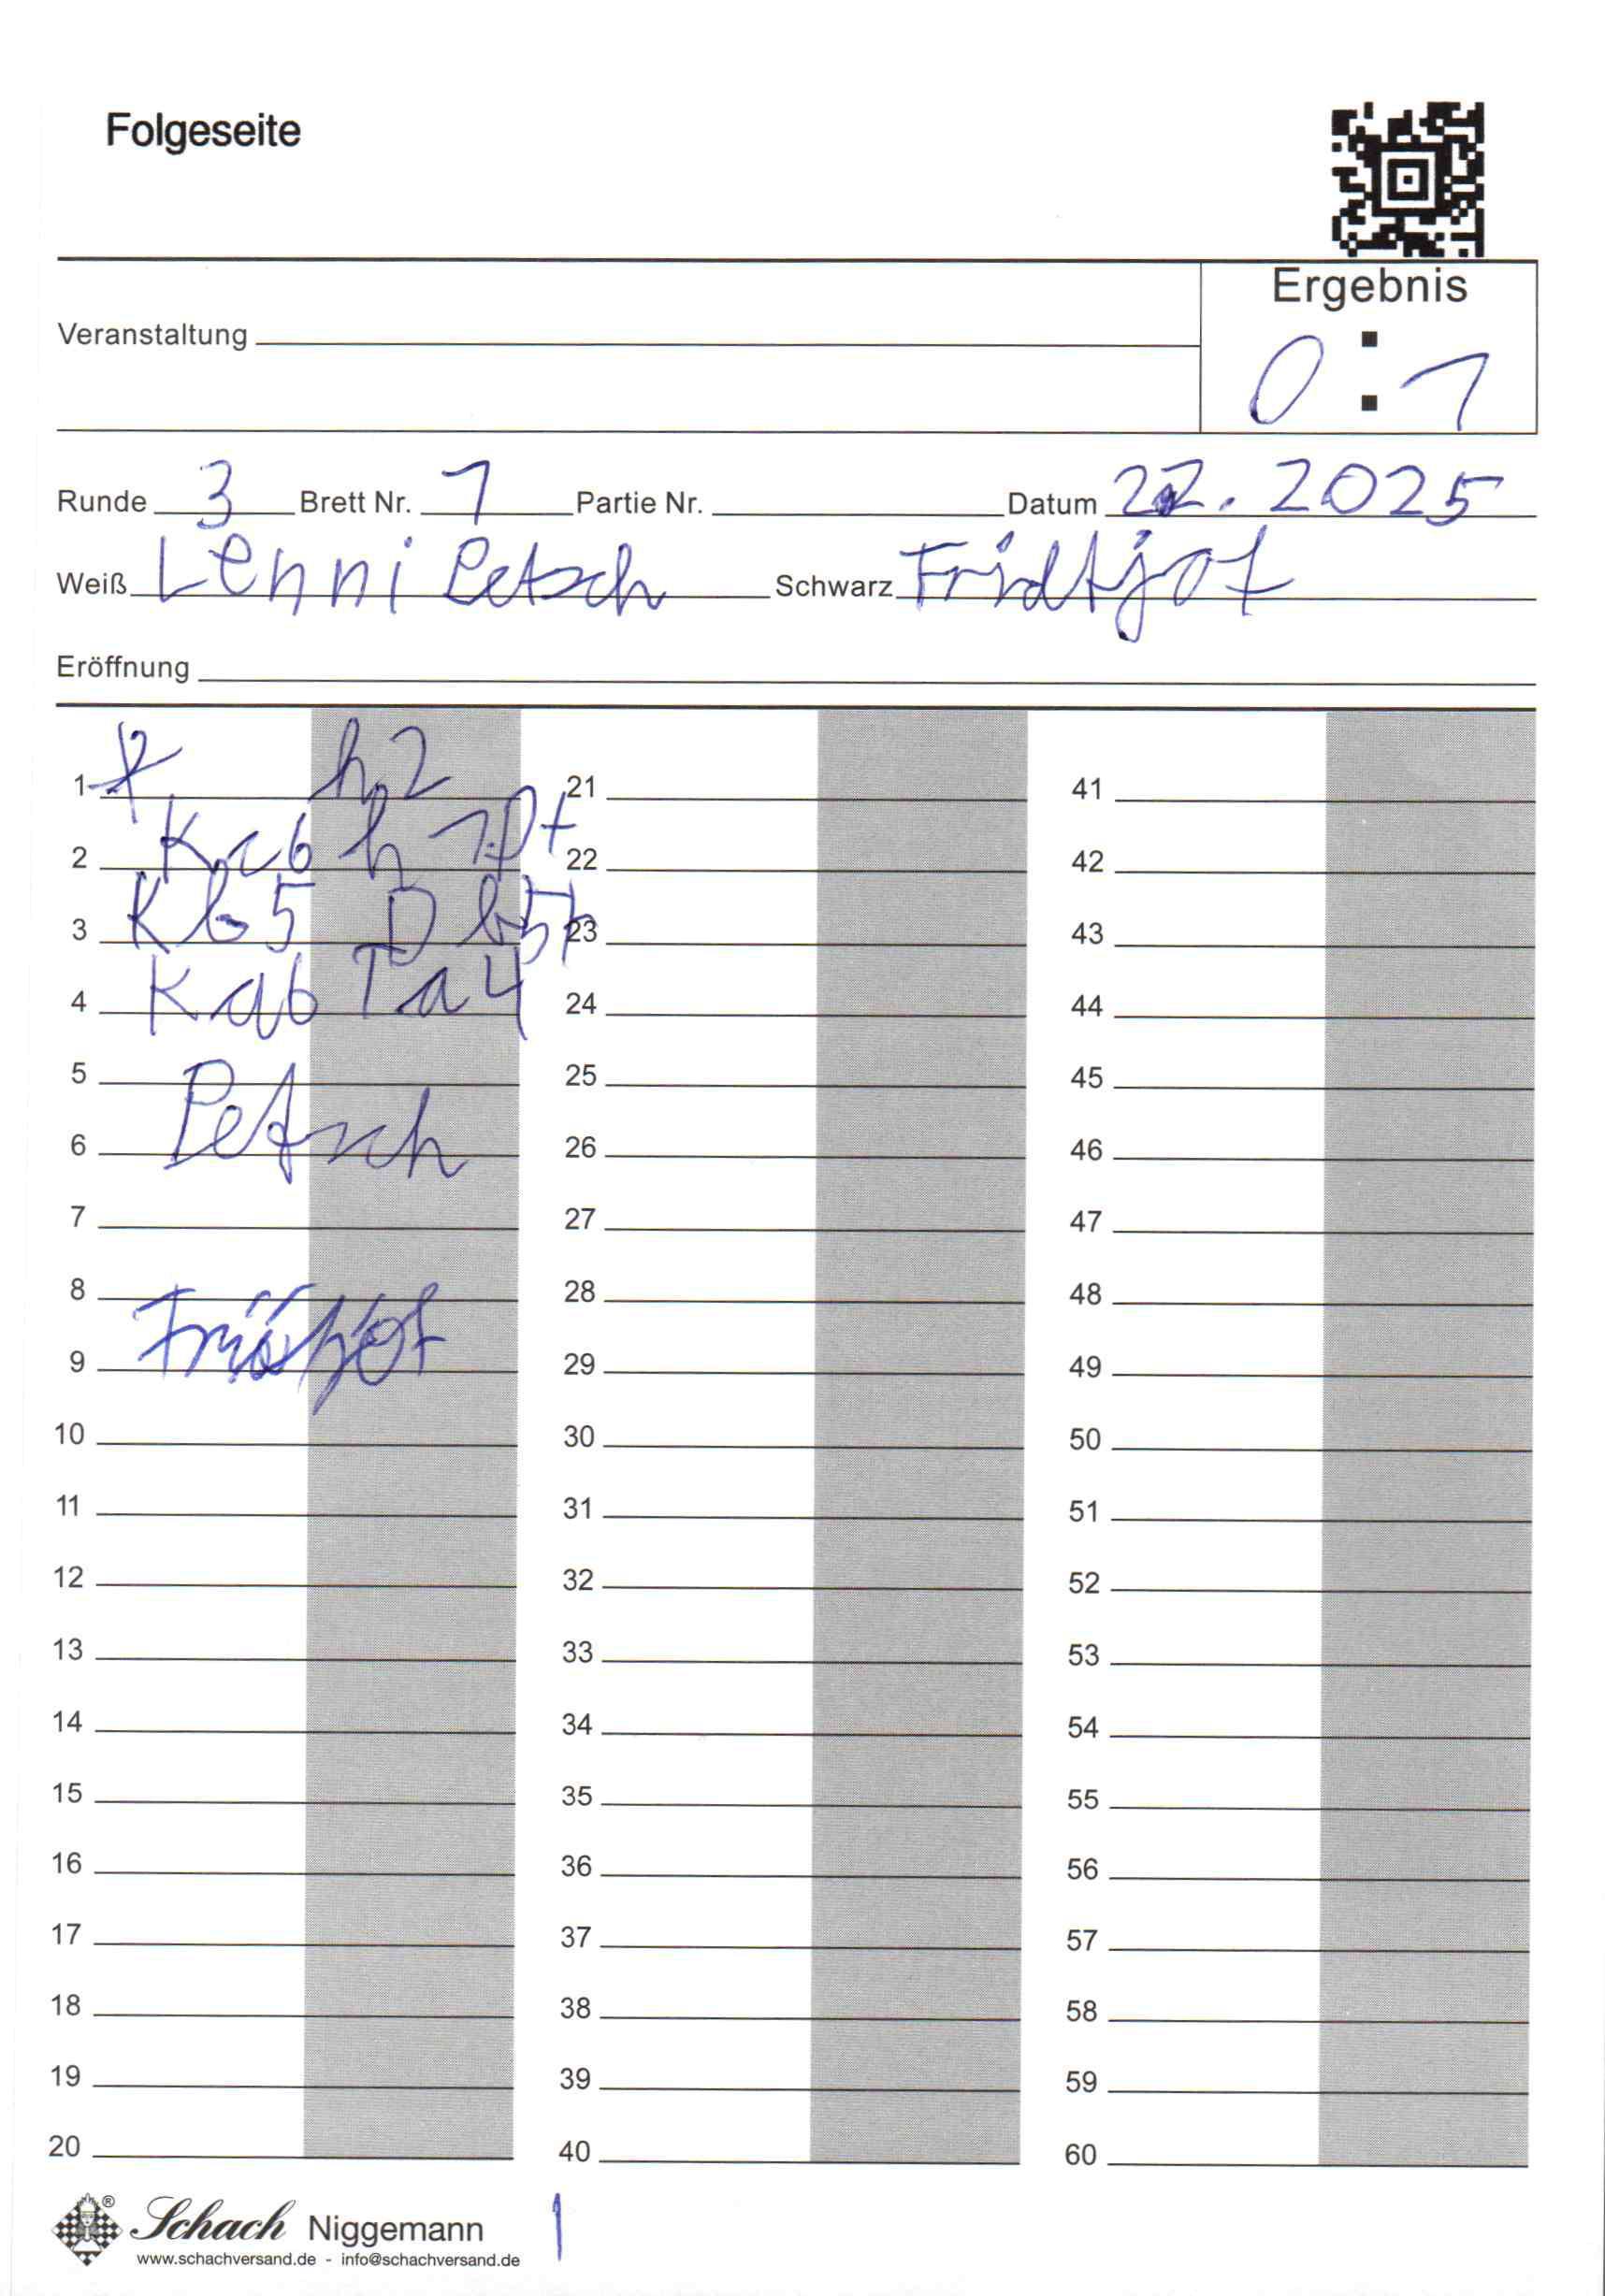 Folgeseite
Ergebnis
Veranstaltung
0 : 1
Runde 3 Brett Nr. 1 Partie Nr. Datum 22. 2025
Weiß Lenni Petsch Schwarz Fridtjof
Eröffnung
1 h2 21 41
2 Ka6 h1D+ 22 42
3 Kb5 Db5+ 23 43
4 Ka6 Ta4 24 44
5 25 45
Petsch
6 26 46
7 27 47
8 28 48
Fridtjof
9 29 49
10 30 50
11 31 51
12 32 52
13 33 53
14 34 54
15 35 55
16 36 56
17 37 57
18 38 58
19 39 59
20 40 60
Schach Niggemann
www.schachversand.de - info@schachversand.de